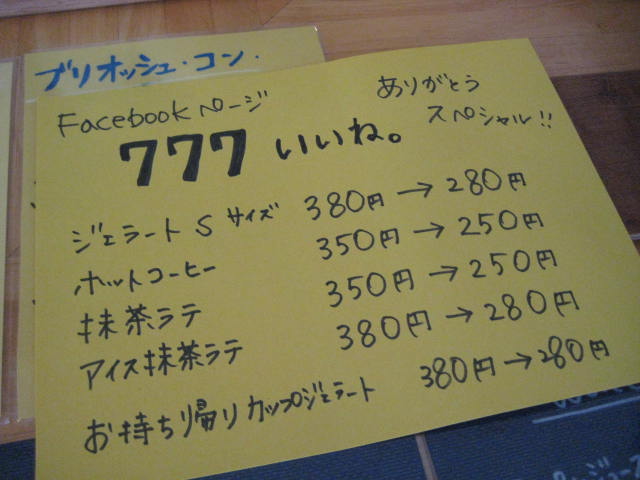 ブリオッシュ・コン・
Facebookページ
ありがとう
スペシャル!!
777 いいね。
ジェラート S サイズ 380円→280円
ホットコーヒー 350円→250円
抹茶ラテ 350円→250円
アイス抹茶ラテ 380円→280円
お持ち帰りカップジェラート 380円→280円